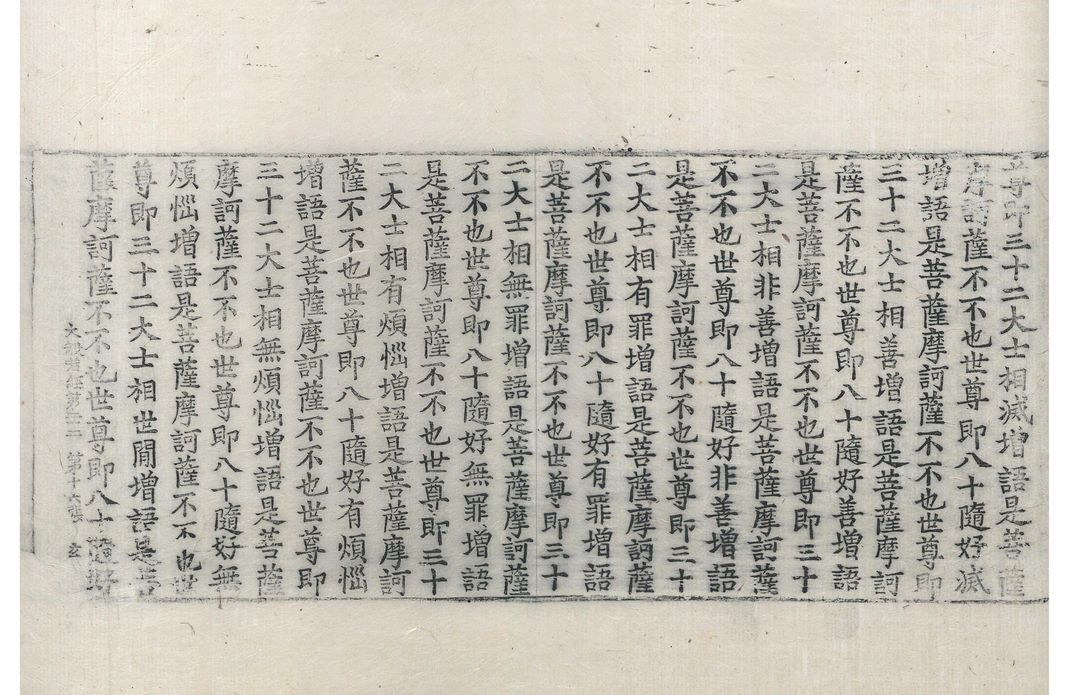 尊即三十二大士相滅增語是菩薩
摩訶薩不不也世尊即八十隨好滅
增語是菩薩摩訶薩不不也世尊即
三十二大士相善增語是菩薩摩訶
薩不不也世尊即八十隨好善增語
是菩薩摩訶薩不不也世尊即三十
二大士相非善增語是菩薩摩訶薩
不不也世尊即八十隨好非善增語
是菩薩摩訶薩不不也世尊即三十
二大士相有罪增語是菩薩摩訶薩
不不也世尊即八十隨好有罪增語
是菩薩摩訶薩不不也世尊即三十
二大士相無罪增語是菩薩摩訶薩
不不也世尊即八十隨好無罪增語
是菩薩摩訶薩不不也世尊即三十
二大士相有煩惱增語是菩薩摩訶
薩不不也世尊即八十隨好有煩惱
增語是菩薩摩訶薩不不也世尊即
三十二大士相無煩惱增語是菩薩
摩訶薩不不也世尊即八十隨好無
煩惱增語是菩薩摩訶薩不不也世
尊即三十二大士相世間增語是菩
薩摩訶薩不不也世尊即八十隨好
大般若經 第十六張 玄